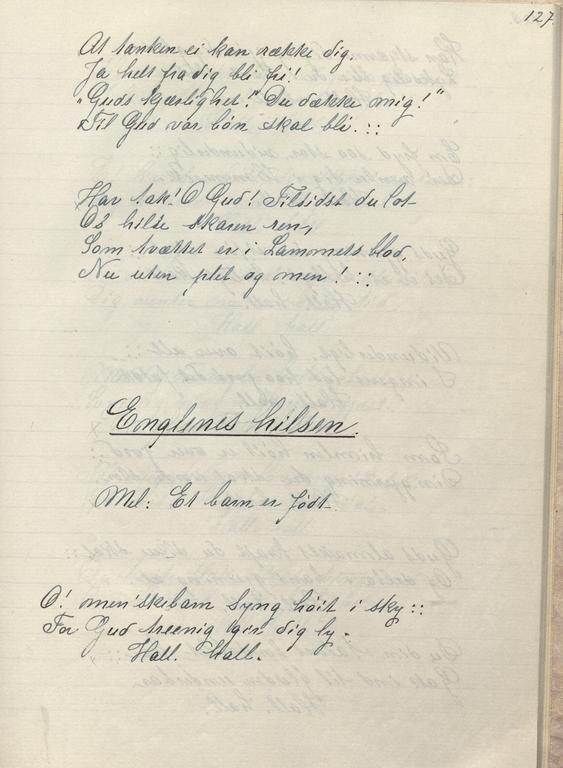 127.
At tanken ei kan række dig.
Ja helt fra dig bli fri!
"Guds kjærlighet!" Du dække mig!"
Til Gud vor bøn skal bli. :::
Hav tak! O Gud! Tilsidst du lot
Os hilse skaren ren,
Som tvættet er i Lammets blod,
Nu uten plet og men! :::
Englenes hilsen.
Mel: Et barn er født
O! men'skebarn syng høit i sky :::
For Gud treenig gir dig ly.
Hall. Hall.